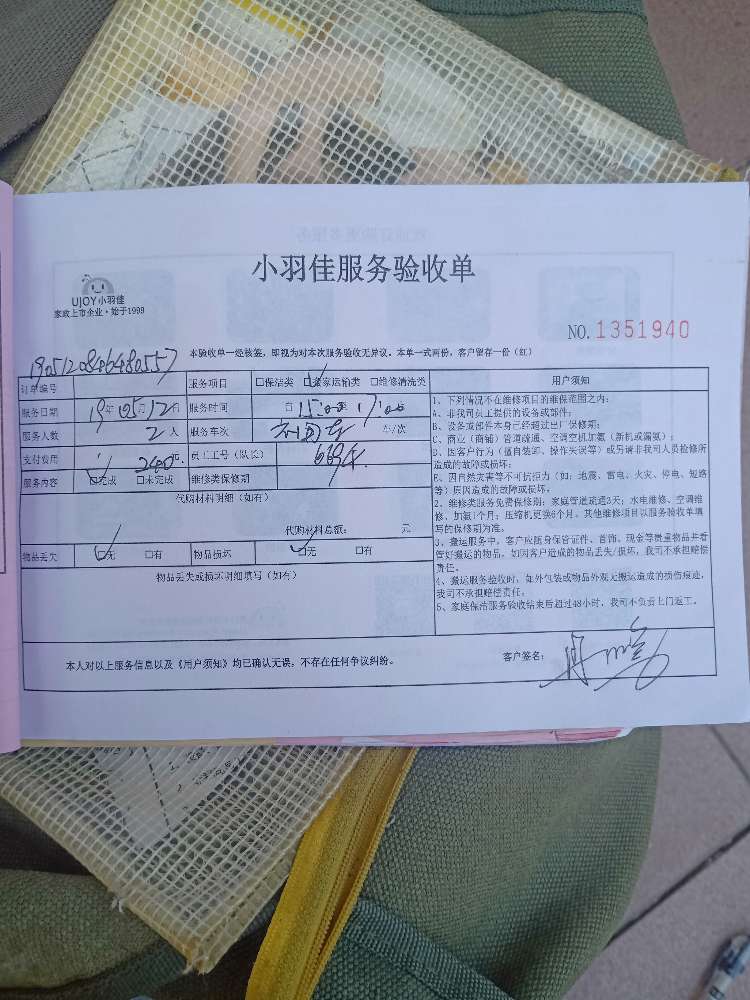 小羽佳服务验收单
UJOY小羽佳
家政上市企业·始于1999
NO.1351940
本验收单一经核签，即视为对本次服务验收无异议。本单一式两份，客户留存一份（红）
订单编号 服务项目 □保洁类 □搬家运输类 □维修清洗类
服务日期 19年05月12日 服务时间 15:00 17:00
服务人数 2人 服务车次 车/次
支付费用 240元 员工工号（队长）
服务内容 □完成 □未完成 维修类保修期
代购材料明细（如有）
代购材料总额： 元
物品丢失 □无 □有 物品损坏 □无 □有
物品丢失或损坏明细填写（如有）
用户须知
1、下列情况不在维修项目的维保范围之内：
A、非我司员工提供的设备或部件；
B、设备或部件本身已经超过出厂保修期；
C、商业（商铺）管道疏通、空调空机加氨（新机或漏氨）；
D、因客户行为（擅自装卸、操作失误等）或另请非我司人员检修所
造成的故障或损坏；
E、因自然灾害等不可抗拒力（如：地震、雷电、火灾、停电、短路
等）原因造成的故障或损坏。
2、维修类服务免费保修期：家庭管道疏通3天；水电维修、空调维
修、加氨1个月；压缩机更换6个月。其他维修项目以服务验收单填
写的保修期为准。
3、搬运服务中，客户应随身保管证件、首饰、现金等贵重物品并看
管好搬运的物品，如因客户造成的物品丢失/损坏，我司不承担赔偿
责任。
4、搬运服务验收时，如外包装或物品外观无搬运造成的损伤痕迹，
我司不承担赔偿责任。
5、家庭保洁服务验收结束后超过48小时，我司不负责上门返工。
本人对以上服务信息以及《用户须知》均已确认无误，不存在任何争议纠纷。
客户签名：